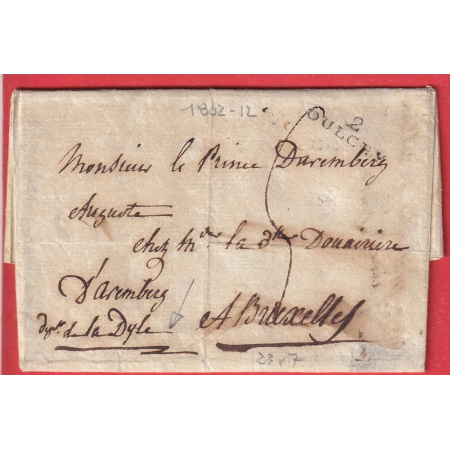 1802-12
2
Monsieur le Prince Daremberg
Auguste
chez Mde la dsse Douairiere
D'aremberg
dept. de la Dyle
A Bruxelles
23 v 7